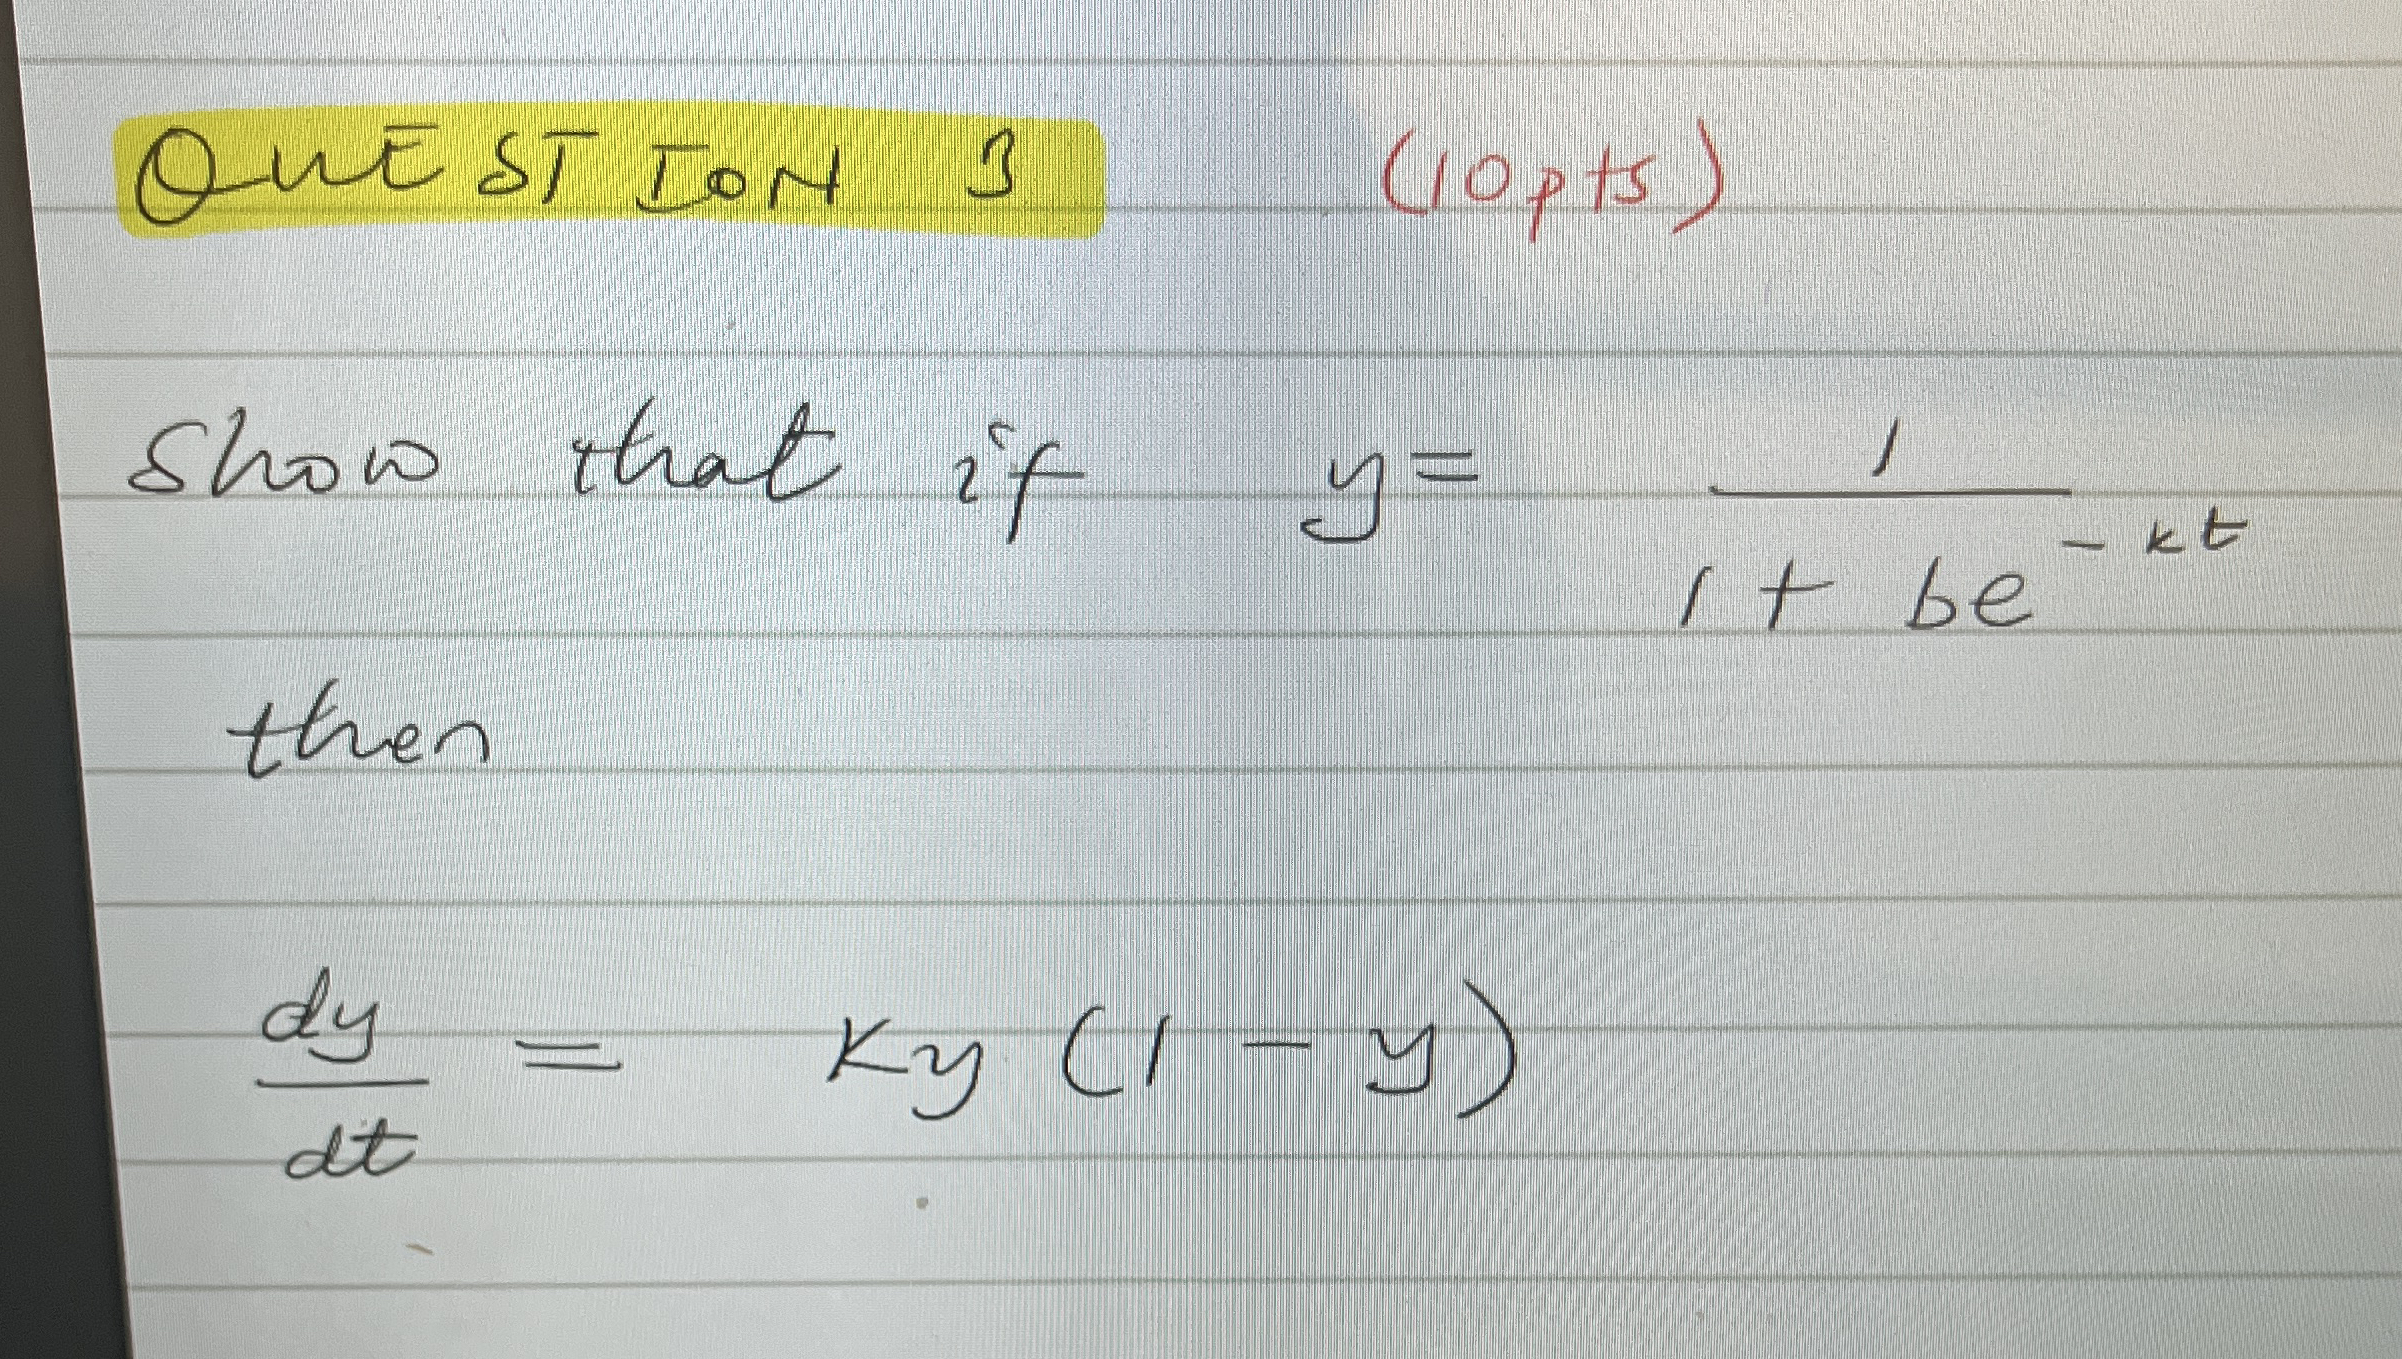 QUESTION 3 (10pts)
Show that if y = 1 / (1 + be^{-kt})
then
dy/dt = ky (1 - y)